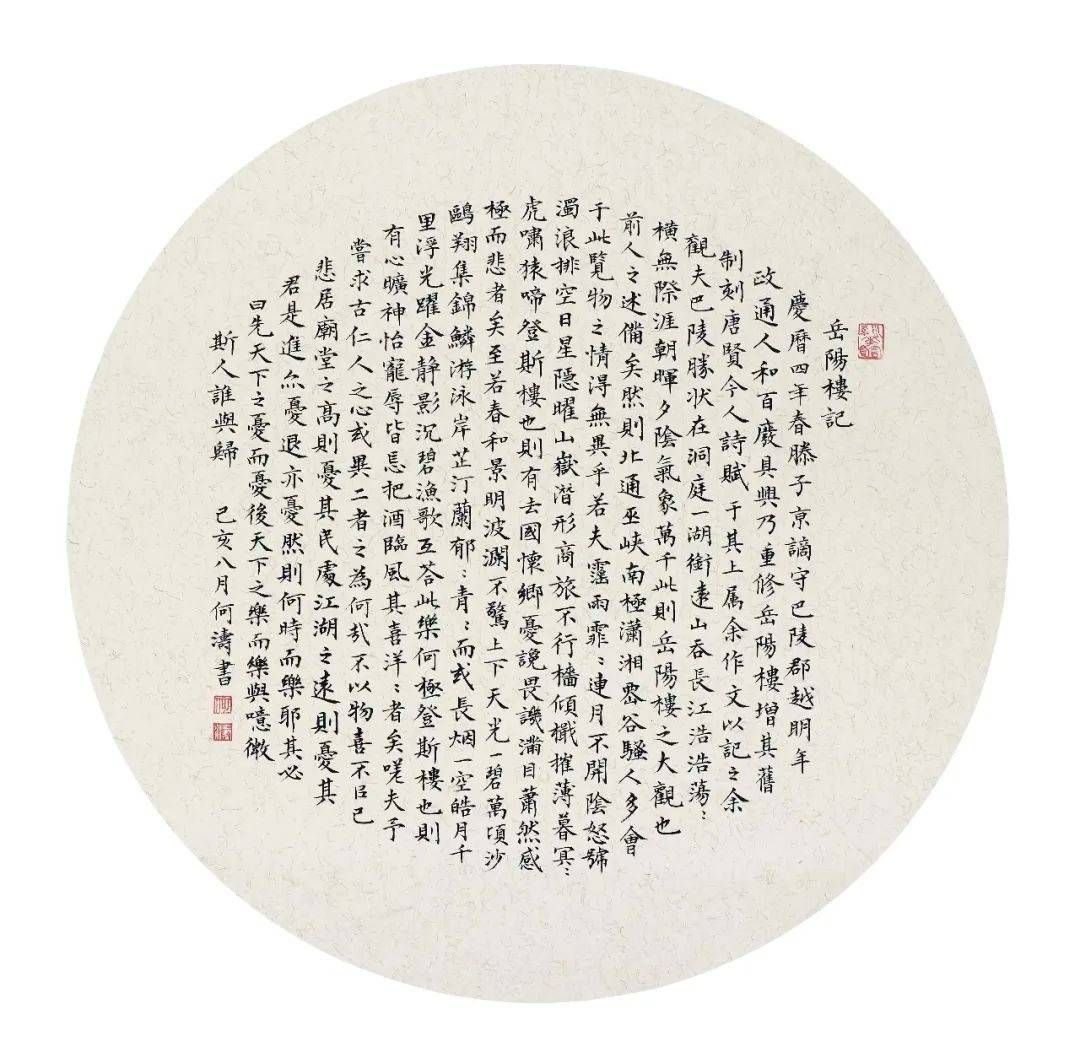 岳陽樓記
慶曆四年春滕子京謫守巴陵郡越明年
政通人和百廢具興乃重修岳陽樓增其舊
制刻唐賢今人詩賦于其上属余作文以記之余
觀夫巴陵勝状在洞庭一湖銜遠山吞長江浩浩蕩:
橫無際涯朝暉夕陰氣象萬千此則岳陽樓之大觀也
前人之述備矣然則北通巫峽南極瀟湘谷騷人多會
于此覽物之情得無異乎若夫霪雨霏:連月不開陰怒號
濁浪排空日星隱曜山嶽潛形商旅不行檣傾檝摧薄暮冥:
虎嘯猿啼登斯樓也則有去國懷鄉憂讒畏譏滿目蕭然感
極而悲者矣至若春和景明波瀾不驚上下天光一碧萬頃沙
鷗翔集錦鱗游泳岸芷汀蘭郁:青:而或長烟一空皓月千
里浮光躍金静影沉碧漁歌互荅此樂何極登斯樓也則
有心曠神怡寵辱皆忘把酒臨風其喜洋:者矣嗟夫予
嘗求古仁人之心或異二者之為何哉不以物喜不以己
悲居廟堂之高則憂其民處江湖之遠則憂其
君是進亦憂退亦憂然則何時而樂耶其必
曰先天下之憂而憂後天下之樂而樂與噫微
斯人誰與歸 己亥八月何濤書